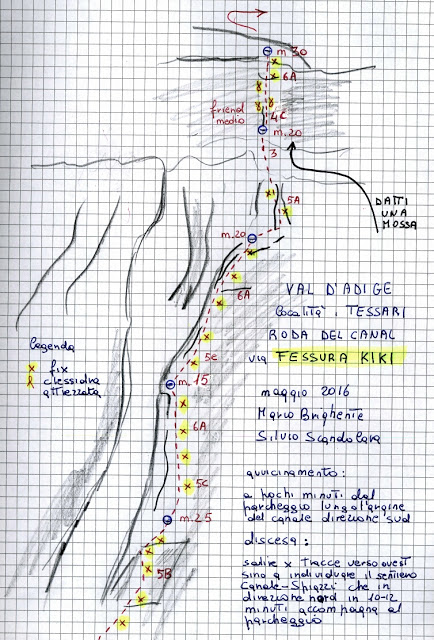 m. 30
6A
friend
medio
4c
m. 20
3
DATTI
UNA
MOSSA
5A
m. 20
6A
5c
m. 15
6A
5c
m. 25
5B
VAL D'ADIGE
località: TESSARI
RODA DEL CANAL
via FESSURA KIKI
legenda
x fix
clessidra
attrezzata
maggio 2016
Mario Brighente
Silvio Scandolara
avvicinamento:
a pochi minuti dal
parcheggio lungo l'argine
del canale direzione sud
discesa:
salire x tracce verso ovest
sino a individuare il sentiero
Canale-Spiazzi che in
direzione nord in 10-12
minuti accompagna al
parcheggio